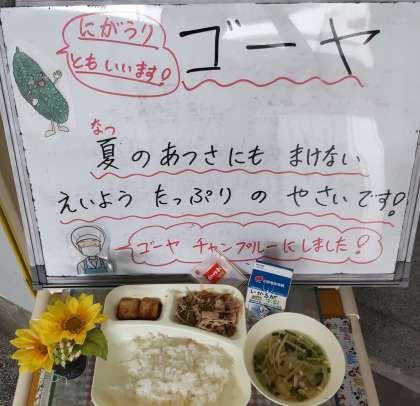 にがうり
ともいいます!
ゴーヤ
なつ
夏のあつさにも まけない
えいよう たっぷり の やさいです!
ゴーヤ チャンプルーにしました!